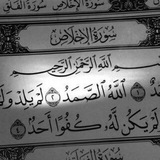 سورة الفلق
سُورَةُ الإِخْلَاصِ
بِسْمِ اللَّهِ الرَّحْمَٰنِ الرَّحِيمِ
اللَّهُ الصَّمَدُ ٢ لَمْ يَلِدْ
يَكُن لَّهُ كُفُوًا أَحَدٌ ٤